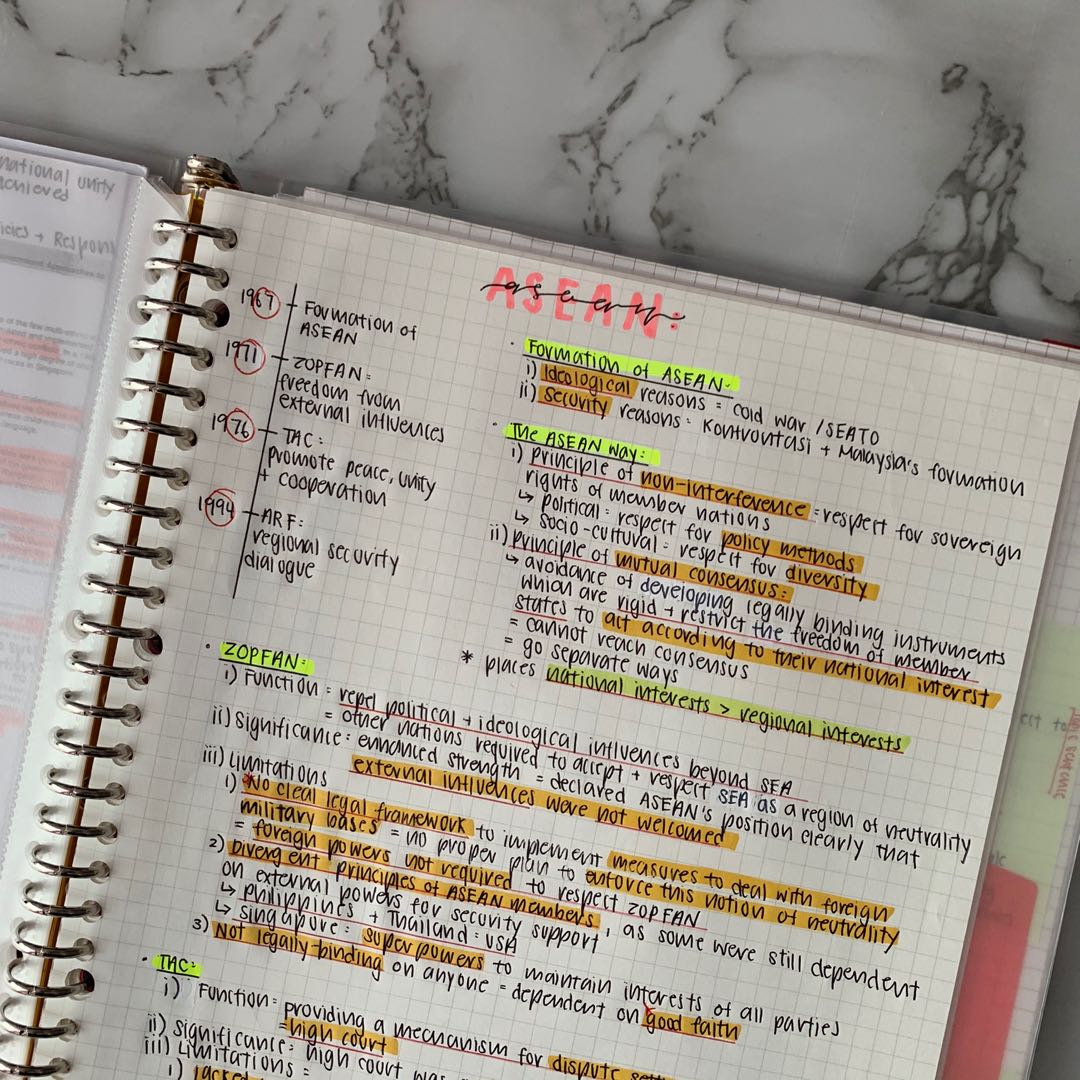 national unity
achieved
+ Respon
ASEAN:
asean
1967
Formation of
ASEAN
1971
ZOPFAN:
freedom from
external influences
1976
TAC:
promote peace, unity
+ cooperation
1994
ARF:
regional security
dialogue
• Formation of ASEAN:
i) Ideological reasons = cold war / SEATO
ii) security reasons: Konfrontasi + Malaysia's formation
• The ASEAN way:
i) principle of non-interference = respect for sovereign
rights of member nations
↳ political: respect for policy methods
↳ socio-cultural: respect for diversity
ii) principle of mutual consensus:
↳ avoidance of developing legally binding instruments
which are rigid + restrict the freedom of member
states to act according to their national interest
= cannot reach consensus
= go separate ways
* places national interests > regional interests
• ZOPFAN:
i) Function = repel political + ideological influences beyond SEA
= other nations required to accept + respect SEA as a region of neutrality
ii) Significance: enhanced strength = declared ASEAN's position clearly that
external influences were not welcomed
iii) Limitations
1) No clear legal framework to implement measures to deal with foreign
military bases = no proper plan to enforce this notion of neutrality
= foreign powers not required to respect ZOPFAN
2) Divergent principles of ASEAN members, as some were still dependent
on external powers for security support
↳ Philippines + Thailand: USA
↳ Singapore: superpowers to maintain interests of all parties
3) Not legally-binding on anyone = dependent on good faith
• TAC:
i) Function = providing a mechanism for dispute
= high court
ii) Significance: high court
iii) Limitations =
1) lacked